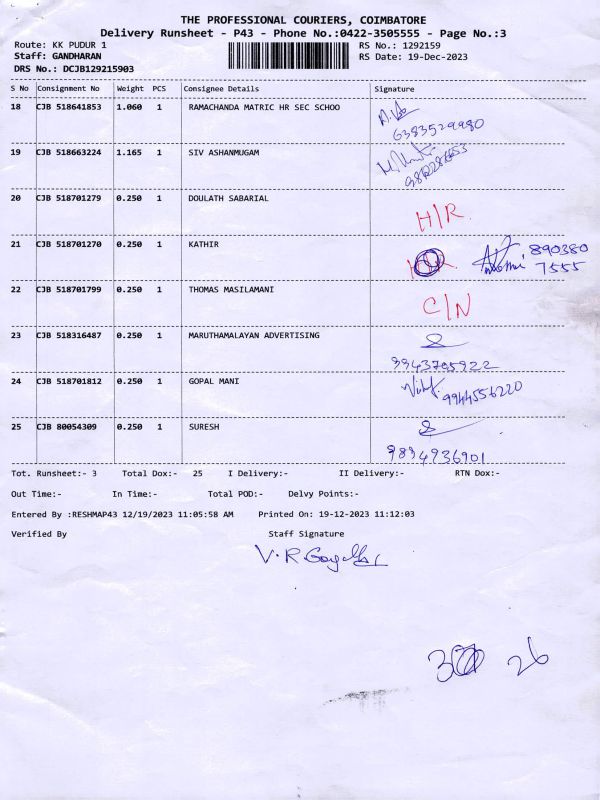 THE PROFESSIONAL COURIERS, COIMBATORE
Delivery Runsheet - P43 - Phone No.:0422-3505555 - Page No.:3
Route: KK PUDUR 1 RS No.: 1292159
Staff: GANDHARAN RS Date: 19-Dec-2023
DRS No.: DCJB129215903
S No Consignment No Weight PCS Consignee Details Signature
18 CJB 518641853 1.060 1 RAMACHANDA MATRIC HR SEC SCHOO
6383529980
19 CJB 518663224 1.165 1 SIV ASHANMUGAM
20 CJB 518701279 0.250 1 DOULATH SABARIAL H/R.
21 CJB 518701270 0.250 1 KATHIR 890380
7555
22 CJB 518701799 0.250 1 THOMAS MASILAMANI C/N
23 CJB 518316487 0.250 1 MARUTHAMALAYAN ADVERTISING
9943795922
24 CJB 518701812 0.250 1 GOPAL MANI 9944556220
25 CJB 80054309 0.250 1 SURESH
9894936901
Tot. Runsheet:- 3 Total Dox:- 25 I Delivery:- II Delivery:- RTN Dox:-
Out Time:- In Time:- Total POD:- Delvy Points:-
Entered By :RESHMAP43 12/19/2023 11:05:58 AM Printed On: 19-12-2023 11:12:03
Verified By Staff Signature
V.R
26